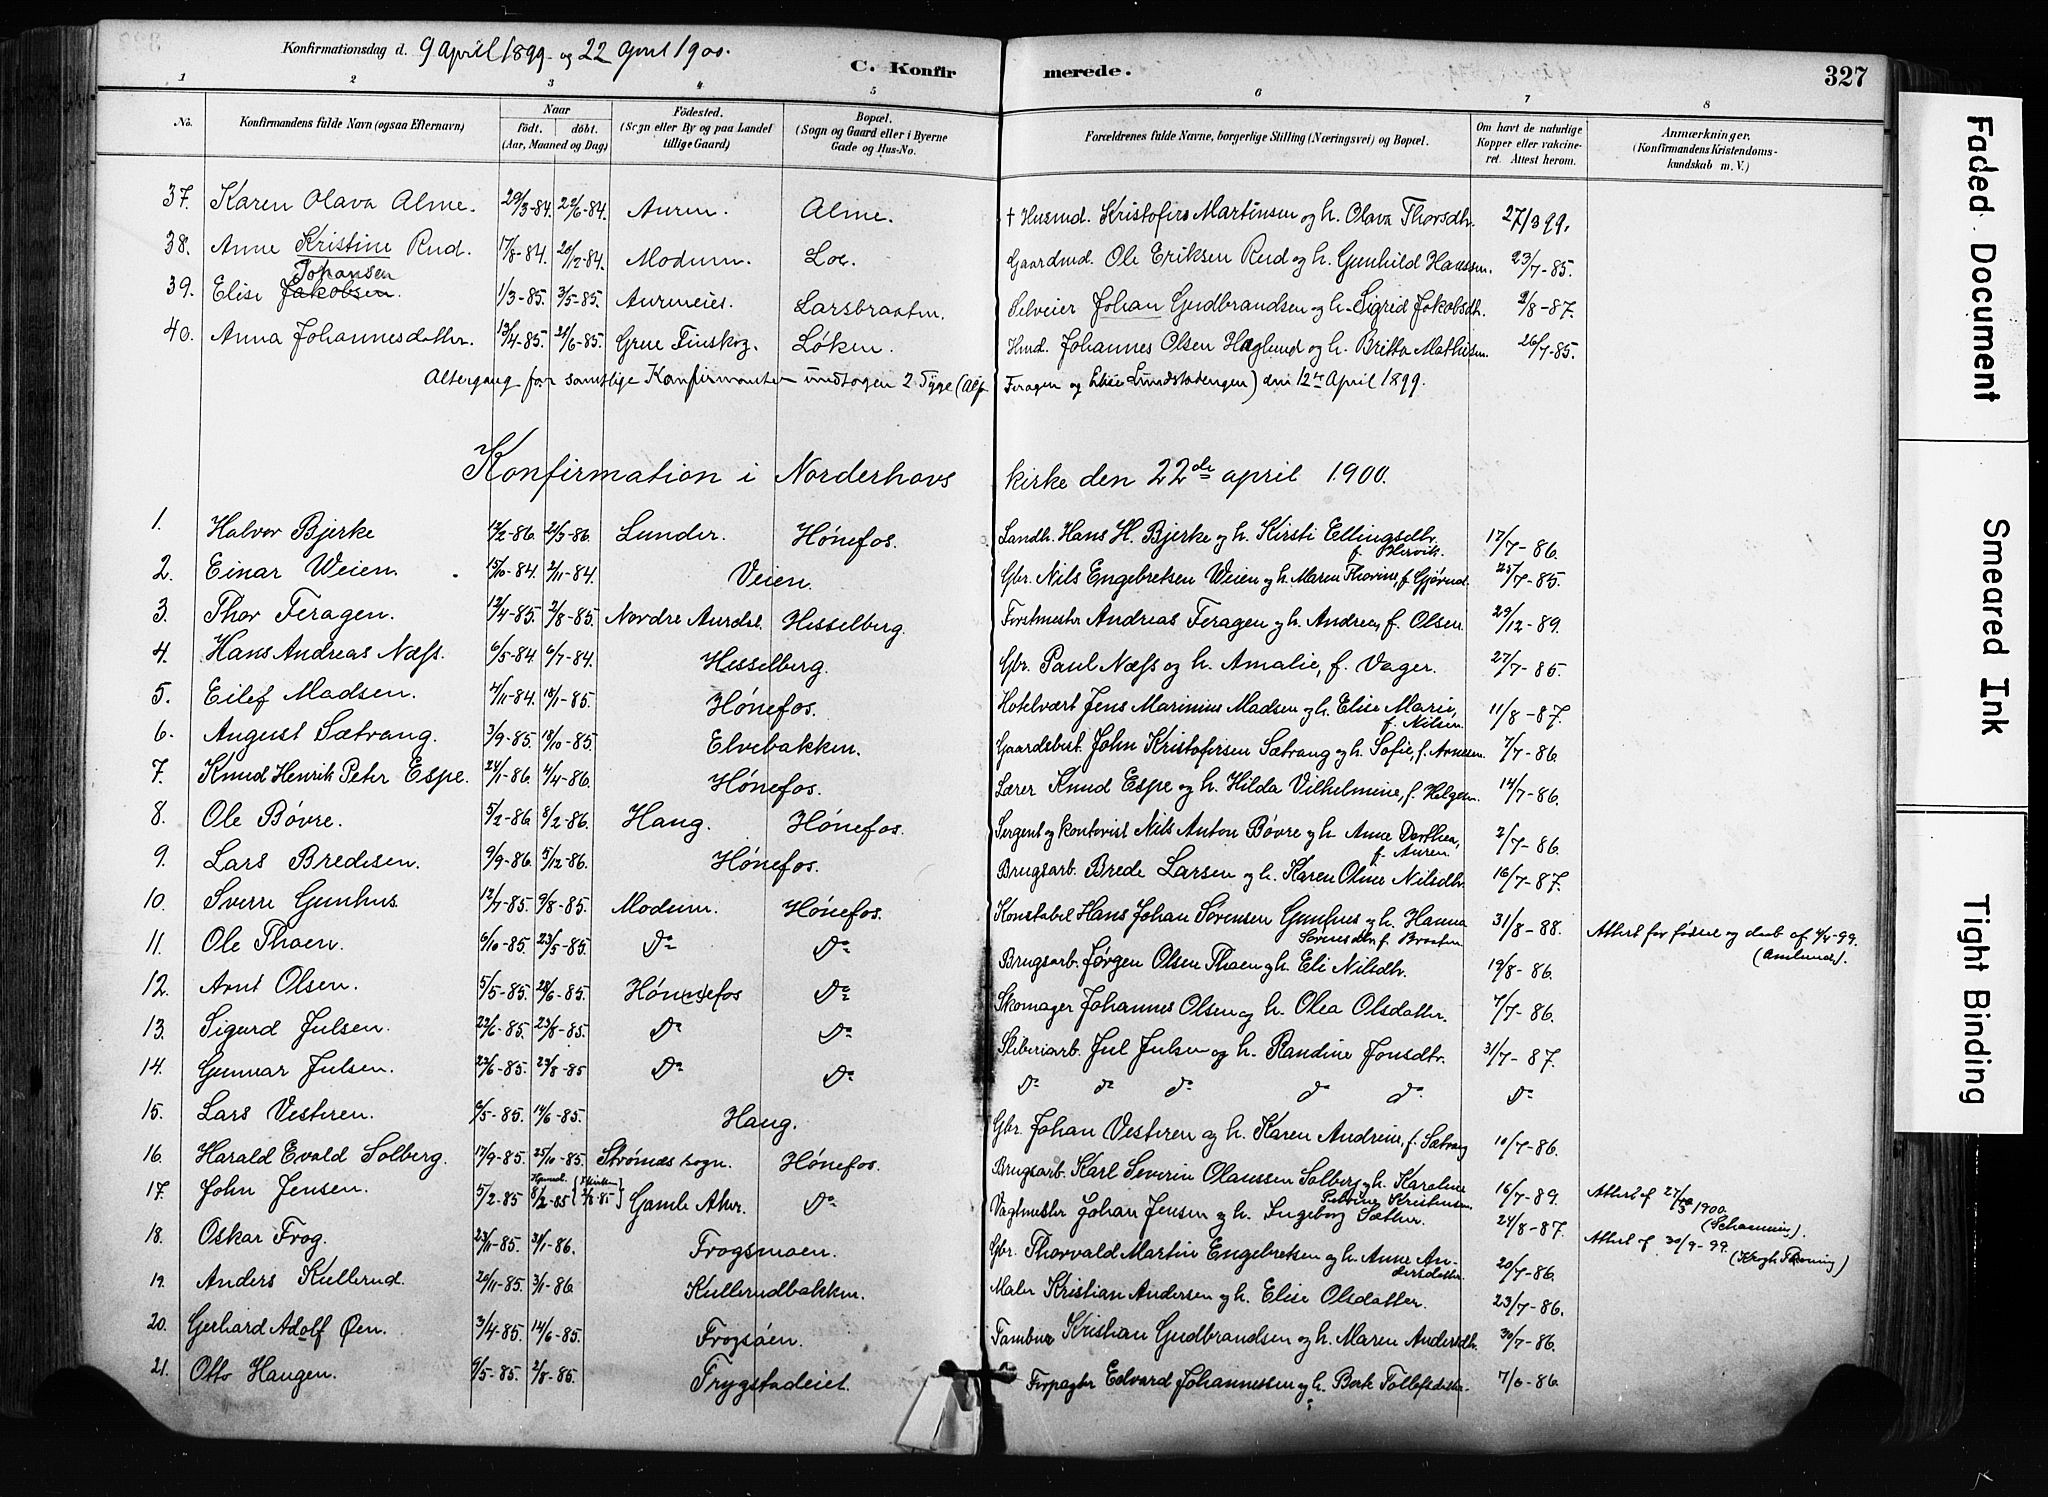 Konfirmationsdag d. 9 April 1899 og 22 April 1900.
C. Konfirmerede.
327
1 2 3 4 5 6 7 8
No. Konfirmandens fulde Navn (ogsaa Efternavn) Naar födt. döbt. (Aar, Maaned og Dag) Födested. (Sogn eller By og paa Landet tillige Gaard) Bopæl. (Sogn og Gaard eller i Byerne Gade og Hus-No. Forældrenes fulde Navne, borgerlige Stilling (Næringsvei) og Bopæl. Om havt de naturlige Kopper eller vakcineret. Attest herom. Anmærkninger. (Konfirmandens Kristendomskundskab m. V.)
37. Karen Olava Alme. 29/3-84. 29/6-84. Auren. Alme. † Husmd. Kristofer Martinsen og h. Olava Thorsdtr. 27/3 99.
38. Anne Kristine Rud. 17/8-84. 20/12-84. Modum. Loe. Gaardmd. Ole Eriksen Rud og h. Gunhild Hanssen. 23/7-85.
39. Elise Jakobsen. Johansen 1/3-85. 3/5-85. Aureneiet. Larsbraaten. Selveier Johan Gudbrandsen og h. Sigrid Jakobsdt. 9/8-87.
40. Anna Johannesdatter. 13/4-85. 21/6-85. Grue Finskog. Løken. Hmd. Johannes Olsen Haglund og h. Britta Mathisen. 26/7-85.
Altergang for samtlige Konfirmanter undtagen 2 Syge (Alf Feragen og Elise Lundstadengen) den 12te April 1899.
Konfirmation i Norderhovs kirke den 22de april 1900.
1. Halvor Bjerke 12/2-86. 24/3-86. Lunder. Hønefos. Landh. Hans H. Bjerke og h. Kirsti Ellingsdtr. f. Hervik. 17/7-86.
2. Einar Weien. 15/10-84. 2/11-84. Veien. Gbr. Nils Engebretsen Weien og h. Maren Thorine, f. Gjørud. 25/7-85.
3. Thor Feragen. 12/4-85. 2/8-85. Nordre Aurdal. Hesselberg. Forstmester Andreas Feragen og h. Andrea, f. Olsen. 29/12-89.
4. Hans Andreas Næss. 6/5-84. 6/7-84. Hesselberg. Gbr. Paul Næss og h. Amalie, f. Vager. 27/7-85.
5. Eilef Madsen. 4/11-84. 18/1-85. Hønefos. Hotelvært Jens Marinius Madsen og h. Elise Marie, f. Nilsen. 11/8-87.
6. August Sætrang. 3/9-85. 18/10-85. Elvebakken. Gaardsbest. John Kristofersen Sætrang og h. Sofie, f. Arnesen. 7/7-86.
7. Knud Henrik Peter Espe. 24/1-86. 4/4-86. Hønefos. Lærer Knud Espe og h. Hilda Vilhelmine, f. Helgesen. 14/7-86.
8. Ole Bøvre. 5/2-86 8/2-86. Haug. Hønefos. Sergent og kontorist Nils Anton Bøvre og h. Anne Dorthea, f. Auren. 2/7-86.
9. Lars Bredesen. 9/9-86. 5/12-86. Hønefos. Brugsarb. Brede Larsen og h. Karen Oline Nilsdtr. 16/7-87.
10. Sverre Gunhus 12/7-85. 9/8-85. Modum. Hønefos. Konstabel Hans Johan Sørensen Gunhus og h. Hanna Sørensdtr. f. Braaten. 31/8-88. Attest for fødsel og daab af 4/4-99. (Amlund).
11. Ole Thoen. 6/10-85. 23/5-85. Do Do Brugsarb. Jørgen Olsen Thoen og h. Eli Nilsdtr. 19/8-86.
12. Arnt Olsen. 5/5-85. 28/6-85. Hønefos Do Skomager Johannes Olsen og h. Olea Olsdatter. 7/7-86.
13. Sigurd Julsen. 23/6-85. 23/8-85. Do Do Sliberiarb. Jul Julsen og h. Randine Jonsdtr. 31/7-87.
14. Gunnar Julsen. 23/6-85. 23/8-85 Do Do Do do do do do. Do
15. Lars Vesteren. 6/5-85. 14/6-85. Haug. Gbr. Johan Vesteren og h. Karen Andrine, f. Sætrang 10/7-86.
16. Harald Evald Solberg. 17/9-85. 25/10-85. Strømøs sogn. Hønefos. Brugsarb. Karl Severin Olaussen Solberg og h. Karoline Kristensen. 16/7-89. Attest af 27/3 1900. (Schanning).
17. John Jensen. 5/2-85 8/2-85 Gamle Aker. Do Vagtmester Johan Jensen og h. Ingeborg Sæther. 24/8-87. Attest af 30/9-99. (Krogh Tonning)
18. Oskar Frog. 23/11-85. 31/1-86. Frogsmoen. Gbr. Thorvald Martin Engebretsen og h. Anne Andersdatter. 20/7-86.
19. Anders Kullerud. 26/11-85. 3/1-86 Kullerudbakken. Maler Kristian Andersen og h. Elise Olsdatter. 23/7-86.
20. Gerhard Adolf Øen. 3/4-85. 14/6-85. Frogsøen. Tambur Kristian Gudbrandsen og h. Maren Andersdtr. 30/7-86.
21. Otto Haugen. 9/5-85. 2/8-85. Trygstadeiet. Forpagter Edvard Johannessen og h. Berte Tollefsdatter. 7/6-86.
Faded Document
Smeared Ink
Tight Binding